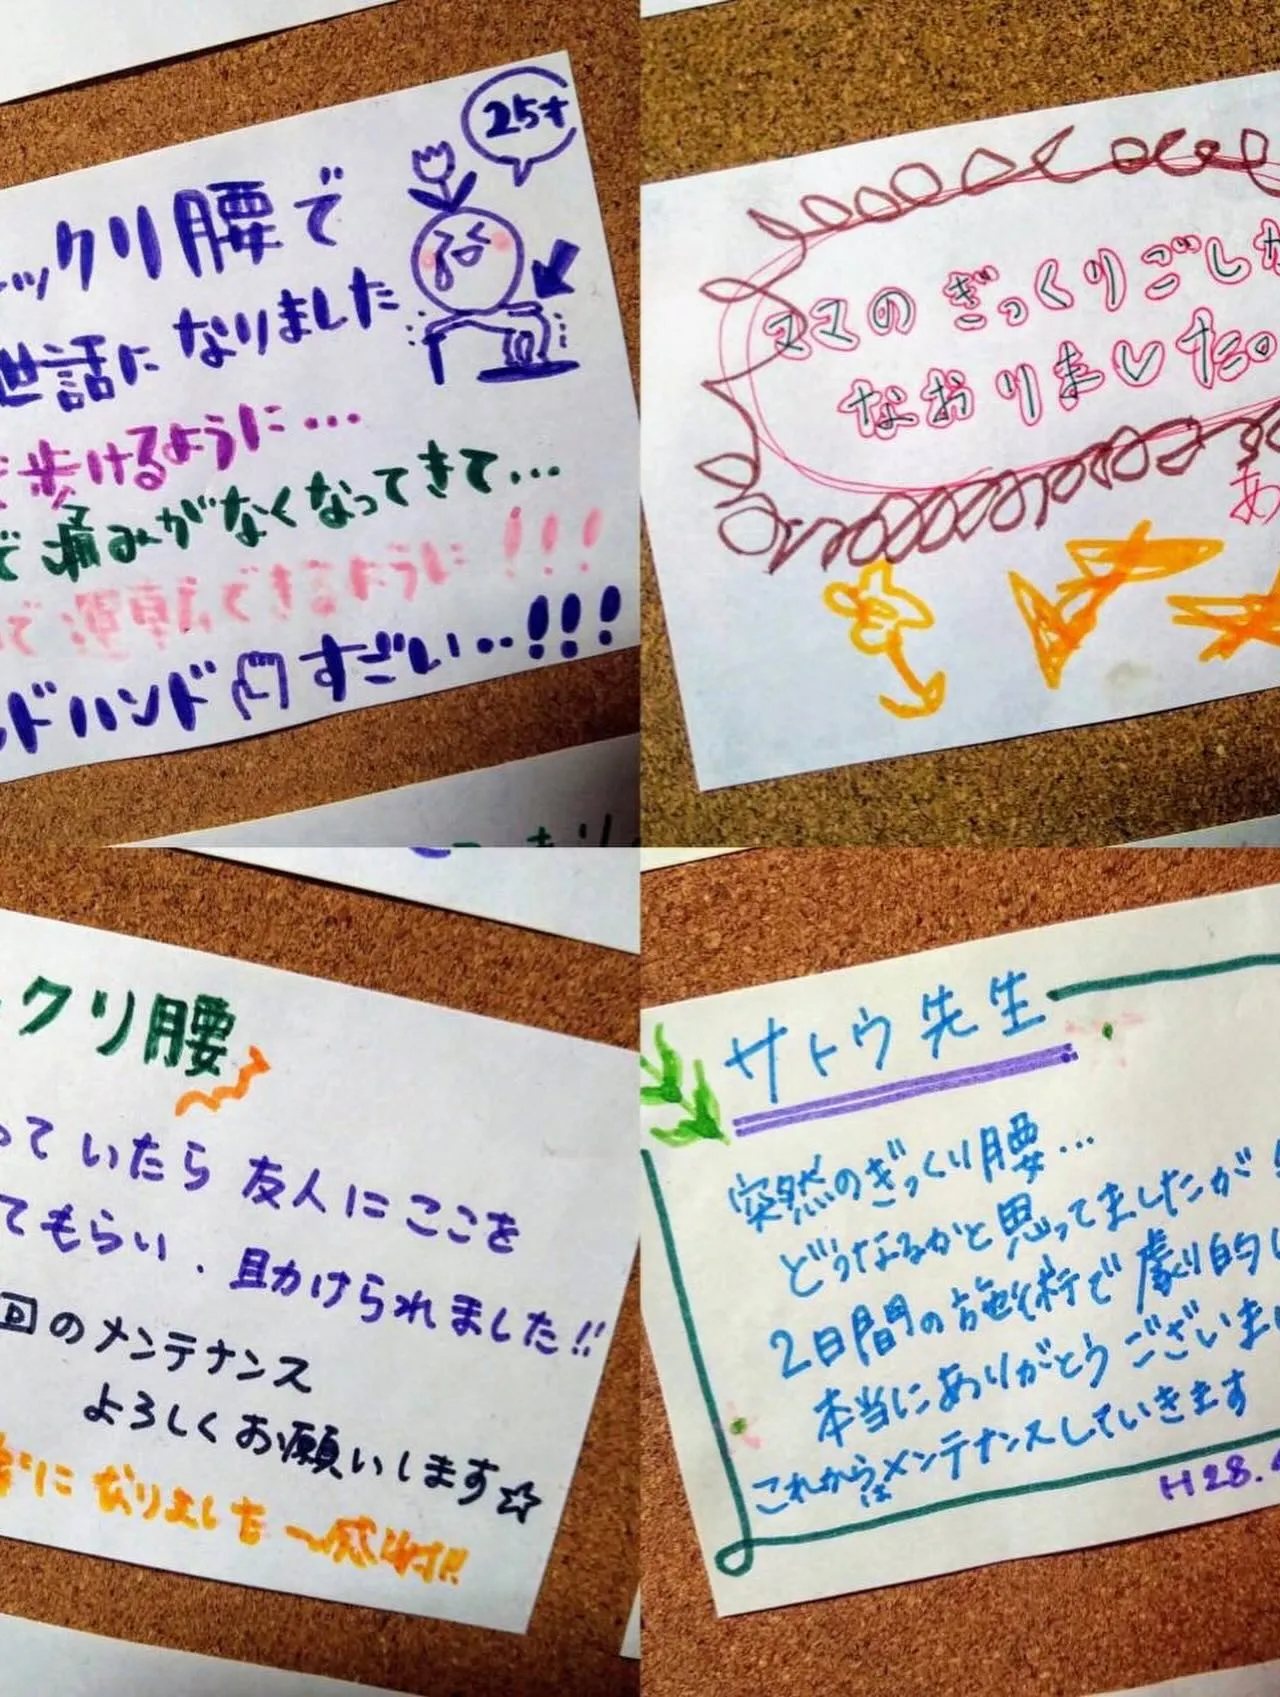 25才
ックリ腰で
世話になりました
歩けるように…
で痛みがなくなってきて…
で運転できるように!!!
ドハンドすごい…!!!
ママのぎっくりごしが
なおりました。
あ
クリ腰
っていたら友人にここを
てもらい、助けられました!!
回のメンテナンス
よろしくお願いします☆
になりました〜感謝!!
サトウ先生
突然のぎっくり腰…
どうなるかと思ってましたが
2日間の施術で劇的に
本当にありがとうございま
これからはメンテナンスしていきます
H28.